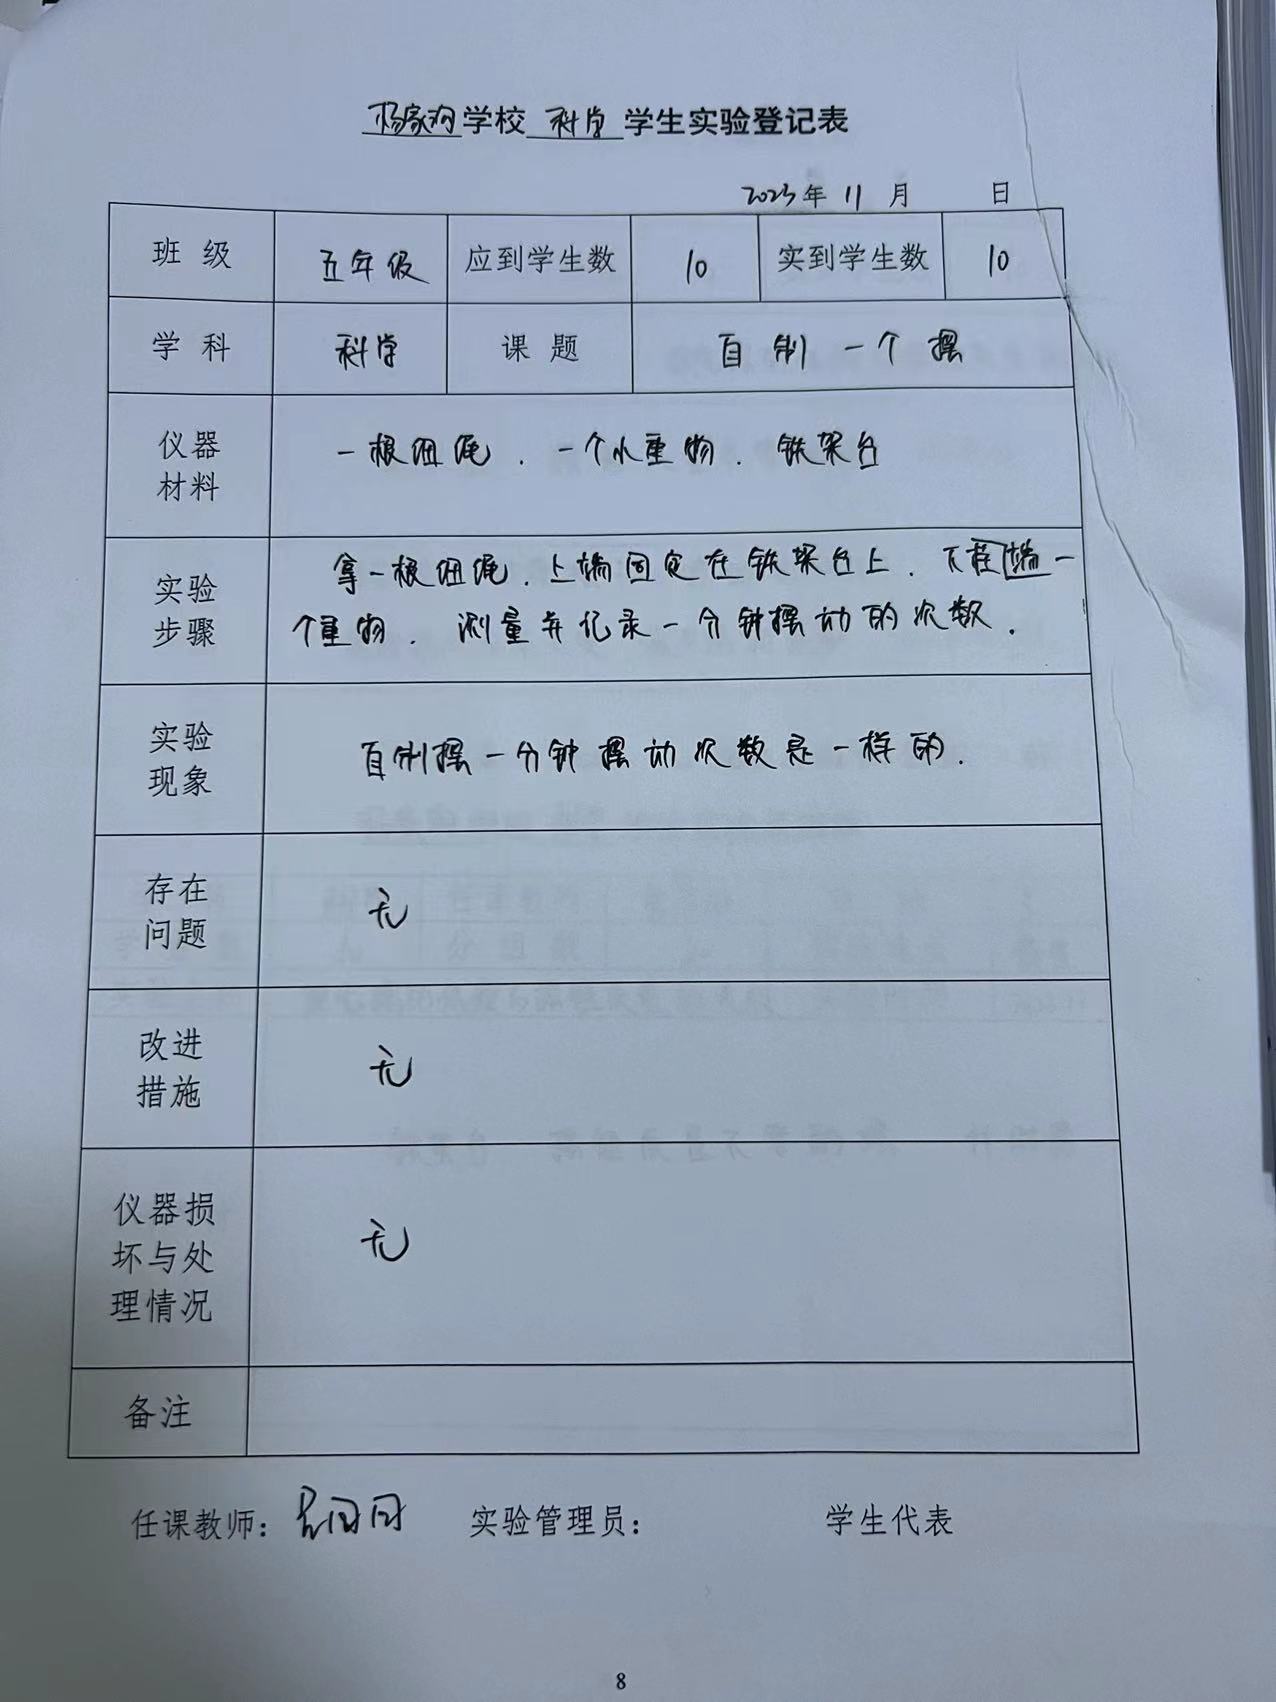 杨家沟学校 科学 学生实验登记表
2023年 11 月 日
班 级 五年级 应到学生数 10 实到学生数 10
学 科 科学 课 题 自制一个摆
仪器
材料
一根细绳．一个小重物．铁架台
实验
步骤
拿一根细绳．上端固定在铁架台上．下 端一
个重物．测量并记录一分钟摆动的次数．
实验
现象
自制摆一分钟摆动次数是一样的．
存在
问题
无
改进
措施
无
仪器损
坏与处
理情况
无
备注
任课教师： 实验管理员： 学生代表
8